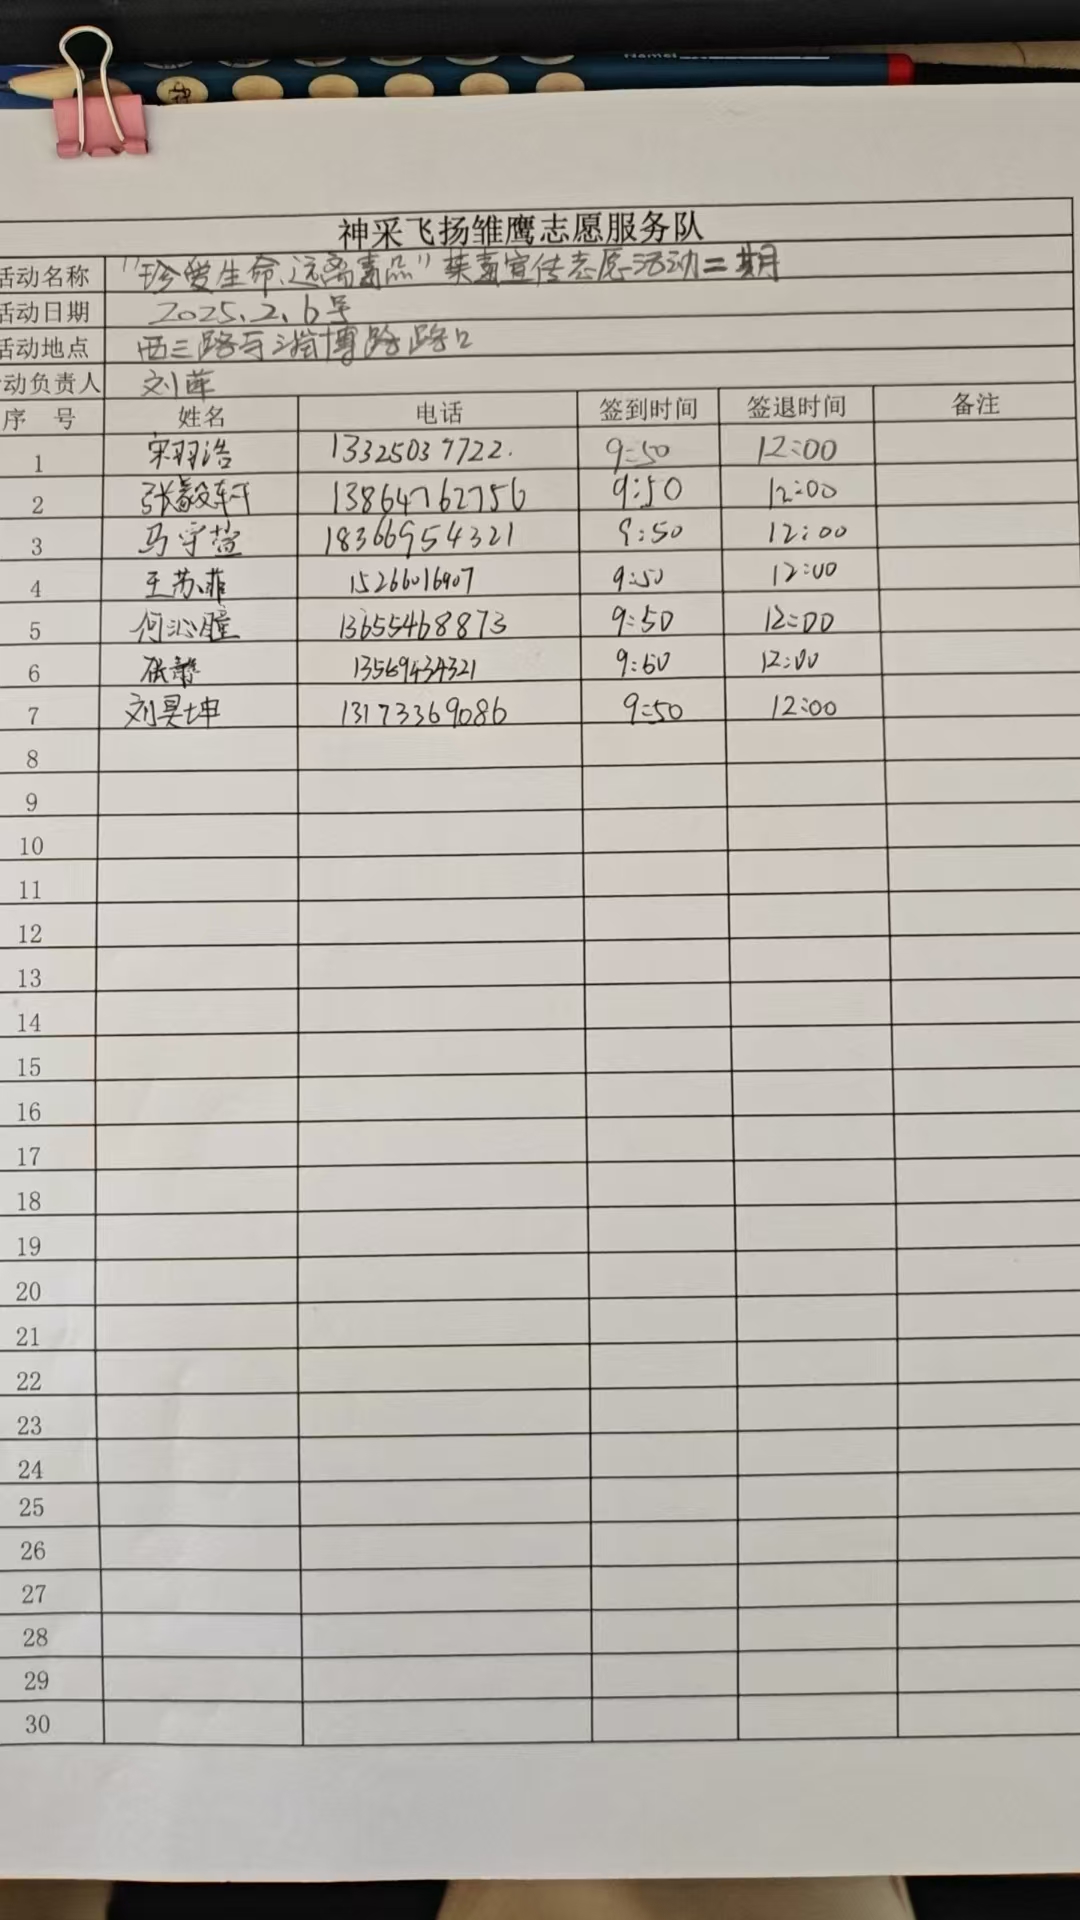 神采飞扬雏鹰志愿服务队
活动名称 “珍爱生命、远离毒品”禁毒宣传志愿活动二期
活动日期 2025.2.6号
活动地点 西三路与淄博路路口
动负责人 刘萍
序号 姓名 电话 签到时间 签退时间 备注
1 宋羽浩 13325037722. 9:50 12:00
2 张毅轩 13864762756 9:50 12:00
3 马宇萱 18366954321 9:50 12:00
4 王苏菲 15266016907 9:50 12:00
5 何沁瞳 13655468873 9:50 12:00
6 张 13569434321 9:60 12:00
7 刘昊坤 13173369086 9:50 12:00
8
9
10
11
12
13
14
15
16
17
18
19
20
21
22
23
24
25
26
27
28
29
30